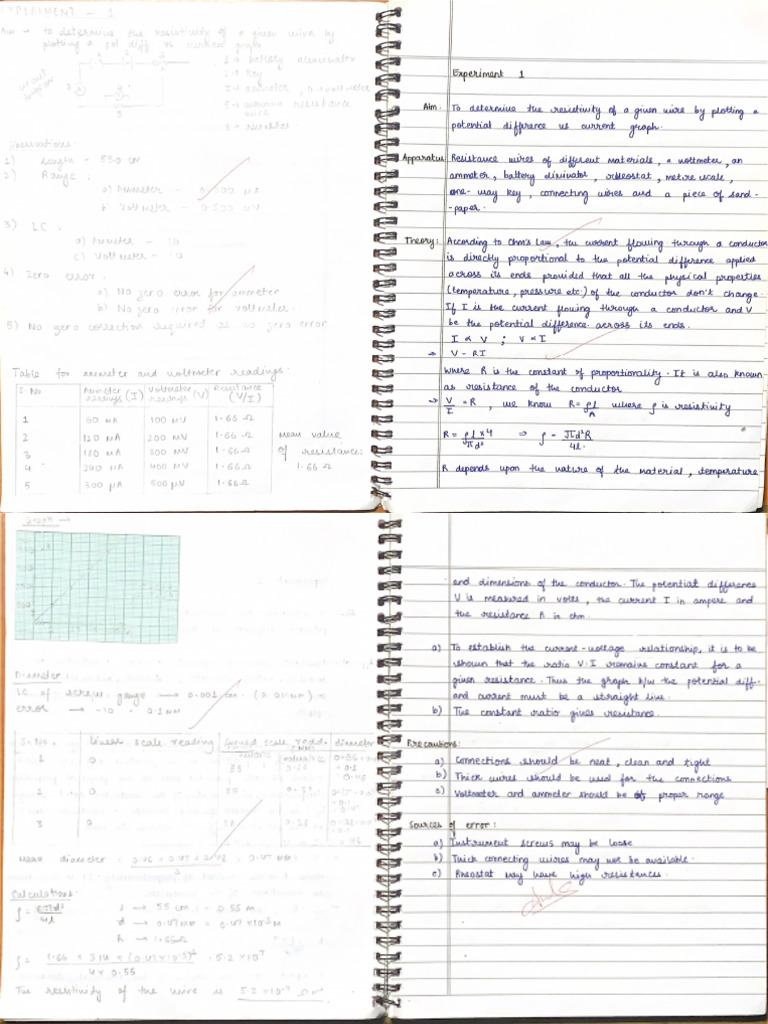 EXPERIMENT - 1
Aim → to determine the resistivity of a given wire by
plotting a pot diff vs current graph
circuit
1 → battery eliminator
2 → key
5 → unknown resistance
wire
Observations:
1) Length - 550 cm
2) Range:
a) Ammeter -
b) Voltmeter -
3) LC:
a) Ammeter - 10
c) Voltmeter - 10
4) Zero error:
a) No zero error for ammeter
b) No zero error for voltmeter.
5) No zero correction required as no zero error
Table for ammeter and voltmeter readings:
S. No Ammeter readings (I) Voltmeter readings (V) Resistance (V/I)
1 60 mA 100 mV 1.66 Ω
2 120 mA 200 mV 1.66 Ω mean value
3 180 mA 300 mV 1.66 Ω of resistance:
4 240 mA 400 mV 1.66 Ω 1.66 Ω
5 300 µA 500 µV 1.66 Ω
Experiment 1
Aim: To determine the resistivity of a given wire by plotting a
potential difference vs current graph.
Apparatus: Resistance wires of different materials, a voltmeter, an
ammeter, battery , rheostat, metre scale,
one-way key, connecting wires and a piece of sand-
-paper.
Theory: According to Ohm's Law, the current flowing through a conductor
is directly proportional to the potential difference applied
across its ends provided that all the physical properties
(temperature, pressure etc.) of the conductor don't change.
If I is the current flowing through a conductor and V
be the potential difference across its ends.
I ∝ V ; V ∝ I
⇒ V = RI
where R is the constant of proportionality. It is also known
as resistance of the conductor
⇒ V/I = R, we know R = ρl/A where ρ is resistivity
R = ρl×4/πd² ⇒ ρ = πd²R/4l.
R depends upon the nature of the material, temperature
Graph →
Diameter:
LC of screw gauge → 0.001 cm (0.01 mm)
error → -10 0.1 mm
S. No. linear scale reading diameter
1 0
2 0
3 0
Mean diameter: 0.47 mm
Calculations:
ρ = Rπd²/4l l → 55 cm - 0.55 m
d → 0.47 mm = 0.47 × 10⁻³ m
R → 1.66 Ω
ρ = 1.66 × 3.14 × (0.47×10⁻³)²/4 × 0.55 = 5.2 × 10⁻⁷
The resistivity of the wire is 5.2 × 10⁻⁷ Ωm
and dimensions of the conductor. The potential difference
V is measured in volts, the current I in ampere and
the resistance R in ohm.
a) To establish the current-voltage relationship, it is to be
shown that the ratio V:I remains constant for a
given resistance. Thus the graph b/w the potential diff-
and current must be a straight line.
b) The constant ratio gives resistance.
Precautions:
a) Connections should be neat, clean and tight
b) Thick wires should be used for the connections
c) Voltmeter and ammeter should be of proper range
Sources of error:
a) Instrument screws may be loose
b) Thick connecting wires may not be available.
c) Rheostat may have high resistances.